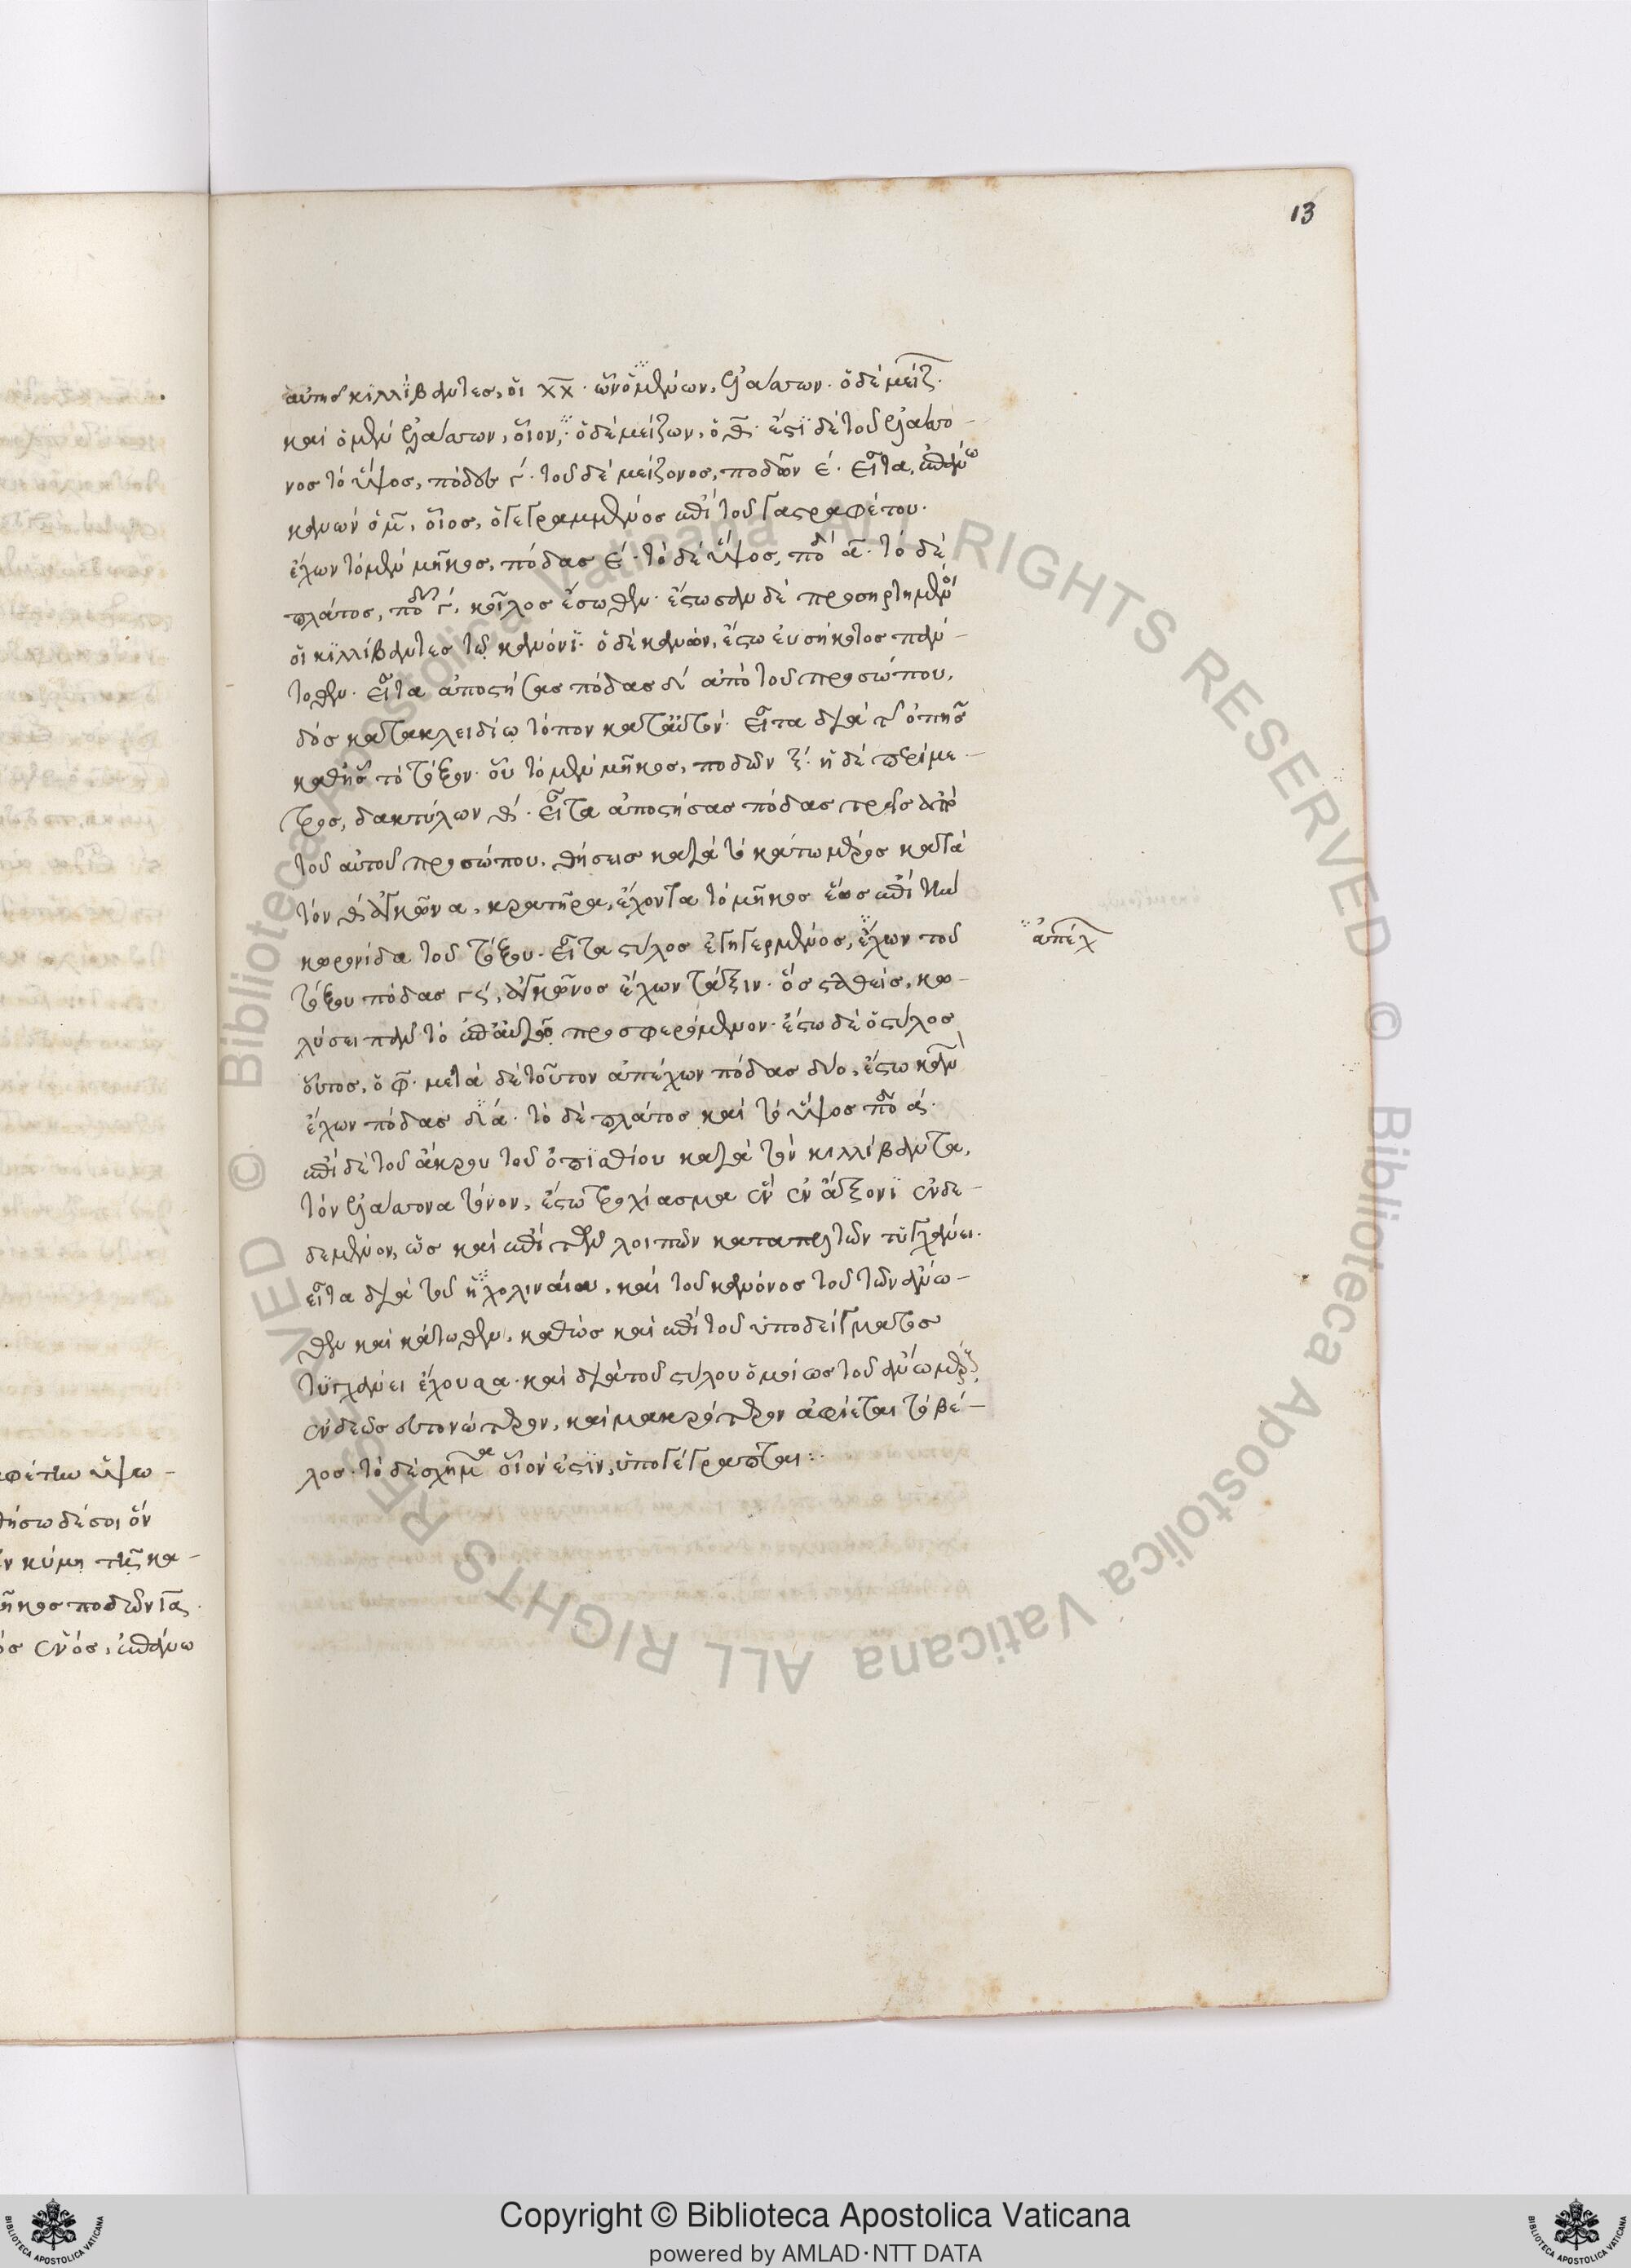 13
αὐτῆς κιλλίβαντες, οἱ χχ. ὧν ὁ μὲν ὢν, ἐλάσσων. ὁ δὲ μείζ.
καὶ ὁ μὲν ἐλάσσων, οἷον, ὁ δὲ μείζων, ὁ θ. ἐστὶ δὲ τοῦ ἐλάσσο-
νος τὸ ὕψος, πόδας γ. τοῦ δὲ μείζονος, ποδῶν ε. εἶτα, ἐπάνω
κανὼν ὁ μ, οἷος, ὁ γεγραμμένος ἐπὶ τοῦ γαστραφέτου.
ἔχων τὸ μὲν μῆκος, πόδας ε. τὸ δὲ ὕψος, ποδ α. τὸ δὲ
πλάτος, ποδ γ, κοῖλος ἔσωθεν. ἔστωσαν δὲ προσηρτημένοι
οἱ κιλλίβαντες τῷ κανόνι. ὁ δὲ κανὼν, ἔστω εὐσήκωτος πάν-
τοθεν. εἶτα ἀποστήσας πόδας δύ ἀπὸ τοῦ προσώπου,
δὸς κατακλειδίῳ τόπον κατ' αὐτόν. εἶτα διὰ τ ὀπῆς
καθῆς τὸ τόξον. οὗ τὸ μὲν μῆκος, ποδῶν ζ. ἡ δὲ περίμε-
τρος, δακτύλων θ. εἶτα ἀποστήσας πόδας τρεῖς ἀπὸ
τοῦ αὐτοῦ προσώπου, θήσεις κατὰ τὸ κάτω μέρος κατὰ
τὸν θ ἀγκῶνα, κρατῆρα, ἔχοντα τὸ μῆκος ἕως ἐπὶ τὴν
κορωνίδα τοῦ τόξου. εἶτα στύλος ἐγηγερμένος, ἔχων τοῦ
ἀπέχ
τόξου πόδας γς, ἀγκῶνος ἔχων τάξιν. ὃς σταθεὶς, κω-
λύσει πᾶν τὸ ἐπ' αὐτῷ προσφερόμενον. ἔστω δὲ ὁ στύλος
οὗτος, ὁ φ. μετὰ δὲ τοῦτον ἀπέχων πόδας δύο, ἔστω κανὼν
ἔχων πόδας ια. τὸ δὲ πλάτος καὶ τὸ ὕψος ποδ α.
ἐπὶ δὲ τοῦ ἄκρου τοῦ ὀπισθίου κατὰ τὸν κιλλίβαντα,
τὸν ἐλάσσονα τόνον, ἔστω τροχίασμα ἓν ἐν ἄξονι ἐνδε-
δεμένον, ὡς καὶ ἐπὶ τῶν λοιπῶν καταπελτῶν τυγχάνει.
εἶτα διὰ τοῦ ἢ χολιναίου, καὶ τοῦ κανόνος τοῦ τῶν ἄνω-
θεν καὶ κάτωθεν, καθὼς καὶ ἐπὶ τοῦ ὑποδείγματος
τυγχάνει ἔχουσα. καὶ διὰ τοῦ στύλου ὁμοίως τοῦ ἄνω μέρους,
ἐνδεῶς εὐτονώτερον, καὶ μακρότερον ἀφίεται τὸ βέ-
λος. τὸ δὲ σχῆμα οἷόν ἐστιν, ὑπογέγραπται:
αφέτου ὕψω-
θήσω δέ σοι ὃν
ν κύμῃ τῆς κα-
ῆκος ποδῶν ια.
ὸς ἑνὸς, ἐπάνω
Copyright © Biblioteca Apostolica Vaticana
powered by AMLAD·NTT DATA